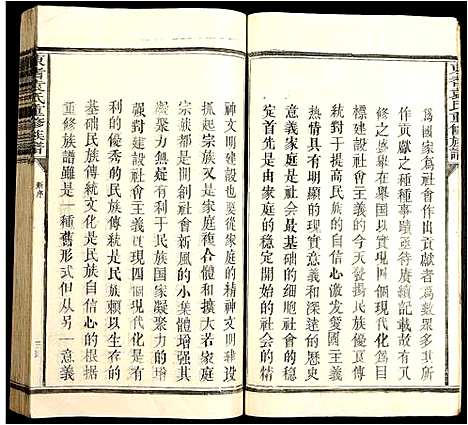 為國家為社會作出貢獻者為數眾多
作貢獻之種種事蹟亟待賡續記載故有
修之盛舉在舉國以實現四個現代化為目
標建設社會主義的今天發揚民族傳統
對于提高民族的自信心激发爱國主義
热情具有明顯的现實意義和深遠的歷史
意義家庭是社會最基礎的細胞社會的穩
定首先是由家庭的穩定開始的社會的精
神文明建設也要從家庭的精神文明建設
抓起宗族又是家庭複合體和擴大若家庭
宗族都成為開創社會新風的小集體增强其
凝聚力自然有利于民族國家凝聚力的增
强對建設社會主義實現四個現代化是有
利的優秀的民族傳統是民族賴以生存的
基础民族傳統文化是民族自信心的根据
重修族譜雖是一種舊形式但从另一意義
新序
三